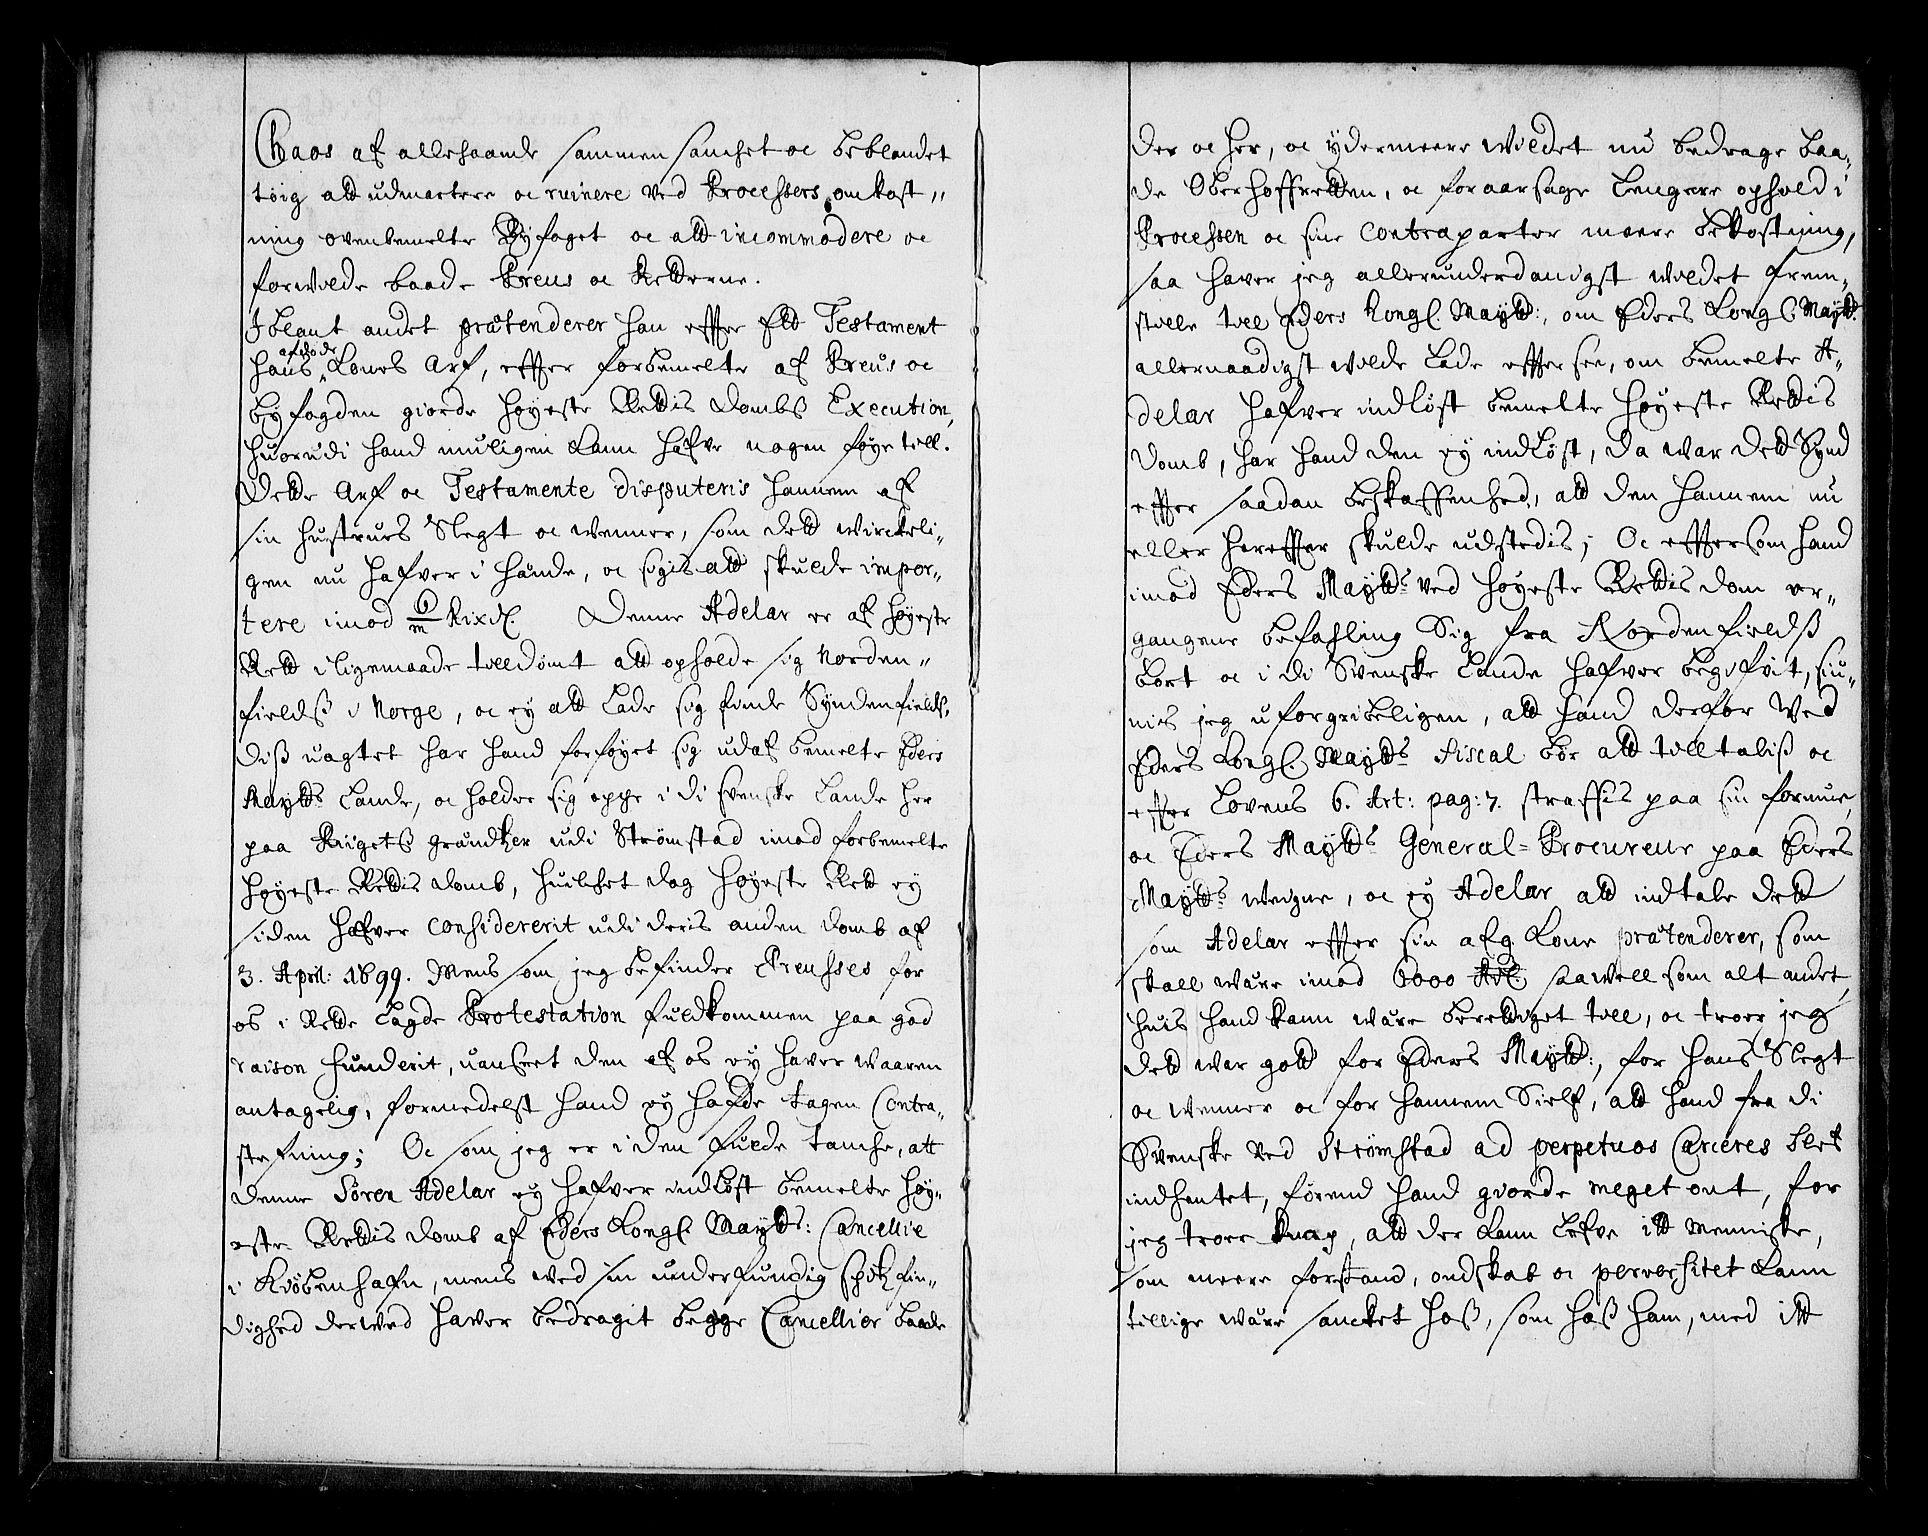 Chaos af allehaande sammensancket oc beblandet
tøig att udmattere oc ruinere ved Processers omkost„
ning ovenbemelte Byfoget oc att incommodere oc
forvilde baade Preus oc Retterne.
Iblant andet prætenderer han effter Eld Testament
hans afdøde Kones Arf, effter forbemelte af Preus oc
byfogden giorde høyeste Rettis Dombs Execution,
huorudi hand muligen kann hafve nogen føye till.
Dette Arf oc Testamente disputeris hannem af
sin hustrues Slegt oc Wenner, som dett wirckeli„
gen nu hafver i hände, oc sigis att skulde impor„
tere imod 6/m Rixd. Denne Adelar er af høyeste
Rett iligemaade tilldømt att opholde sig Norden„
fieldß i Norge, oc ey att lade sig finde Syndenfields,
Diß uagtet har hand forføyet sig udaf bemelte Eders
Maytts Lande, oc holder sig oppe i di Svenske Lande her
paa Riigets grændtzer udi Strømstad imod forbemelte
høyeste Rettis Domb, huilchet dog høyeste Rett ey
siden hafver considererit udi deris anden Domb af
3. April: 1699. Mens som jeg befinder Preusses for
os i Rette lagde Protestation fuldkommen paa god
raison funderit, uanseet den af os ey haver waaren
antagelig, formedelst hand ey hafde tagen Contra„
stefning; Oc som jeg er i den fulde tanche, att
denne Søren Adelar ey hafver indløst bemelte høy„
este Rettis Domb af Eders Kongl. Maytts: Cancellie
i Kiøbenhafn, mens ved sin underfundig Spitzfin„
dighed derved haver bedragit begge Cancellier baade
der oc her, oc ydermeere Wildet nu bedrage baa„
de Oberhoffretten, oc foraarsage lengere ophold i
Processen oc sine Contraparter meere bekostning,
saa haver jeg allerunderdanigst wildet frem„
stille till Eders Kongl. Maytt:, om Eders Kongl. Maytt.
allernaadigst wilde lade effter see, om bemelte A„
delar hafver indløst bemelte høyeste Rettis
Domb, har hand den ey indløst, da war dett Synd
effter saadan beskaffenhed, att den hannem nu
eller hereffter skulde udstedis; Oc efftersom hand
imod Eders Maytts ved høyeste Rettis dom er„
gangene befahling Sig fra Nordenfieldß
bort oc i di Svenske Lande hafver begifvit, siu„
nis jeg uforgribeligen, att hand derfor Ved
Eders Kongl. Maytts Fiscal bør att tilltaliß oc
effter Lovens 6. Art: pag: 7. straffis paa sin formue,
oc Eders Maytts General=Procureur paa Eders
Maytts weigne, oc ey Adelar att indtale dett
som Adelar effter sin afg. Kone prætenderer, som
skall wære imod 6000 Rd. saavell som alt andet,
huis hand kann wære berettiget till, oc troer jeg
dett war gott for Eders Maytt:, for hans Slegt
oc Wenner oc for hannem Sielf, att hand fra di
Svenske ved Strømstad ad perpetuos Carceres blef
indhentet, førend hand giorde meget ont, for
jeg troer knap, att der kann lefve itt Menniske,
som meere forstand, ondskab oc perversitet kann
tillige wære sancket hoß, som hoß ham, med itt